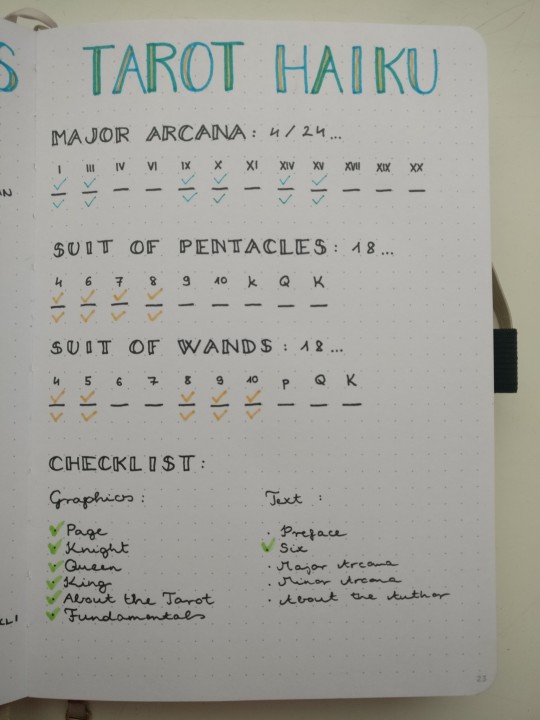 S
TAROT HAIKU
MAJOR ARCANA: 4/24...
I III IV VI IX X XI XIV XV XVII XIX XX
SUIT OF PENTACLES: 18...
4 6 7 8 9 10 k Q K
SUIT OF WANDS: 18...
4 5 6 7 8 9 10 P Q K
CHECKLIST:
Graphics: Text:
Page · Preface
Knight Six
Queen · Major Arcana
King · Minor Arcana
About the Tarot · About the Author
Fundamentals
23